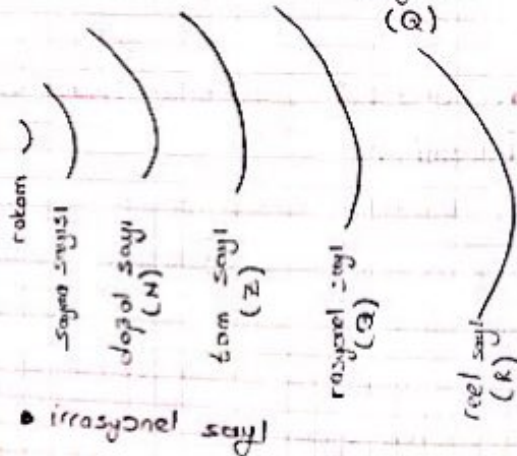 rakam
sayma sayısı
doğal sayı
(N)
tam sayı
(Z)
rasyonel sayı
(Q)
(Q)
reel sayı
(R)
• irrasyonel sayı